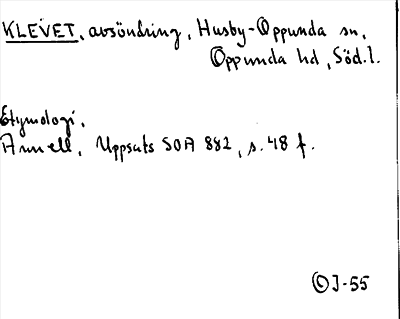 KLEVET, avsöndring, Husby-Oppunda sn,
Oppunda hd, Söd.l.
Etymologi.
Annell, Uppsats SOA 882, s. 48 f.
©J-55